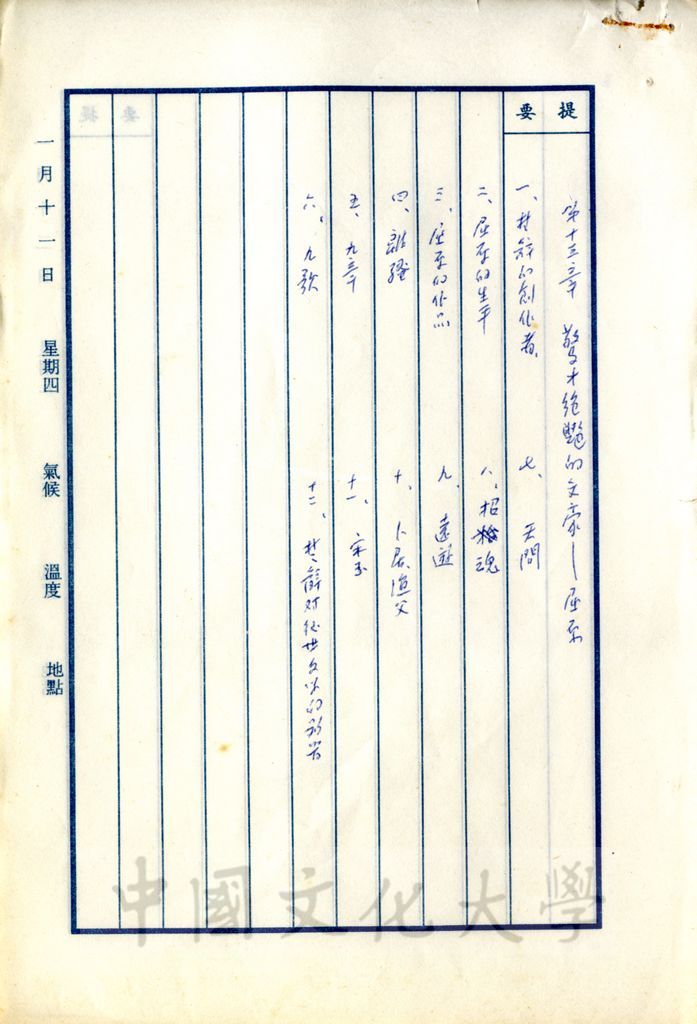 提要
第十三章 驚才絕艷的文豪—屈原
一、楚辭的創作者
二、屈原的生平
三、屈原的作品
四、離騷
五、九章
六、九歌
七、天問
八、招魂
九、遠遊
十、卜居漁父
十一、宋玉
十二、楚辭对後世文学的影响
一月十一日 星期四 氣候 溫度 地點
中國文化大學